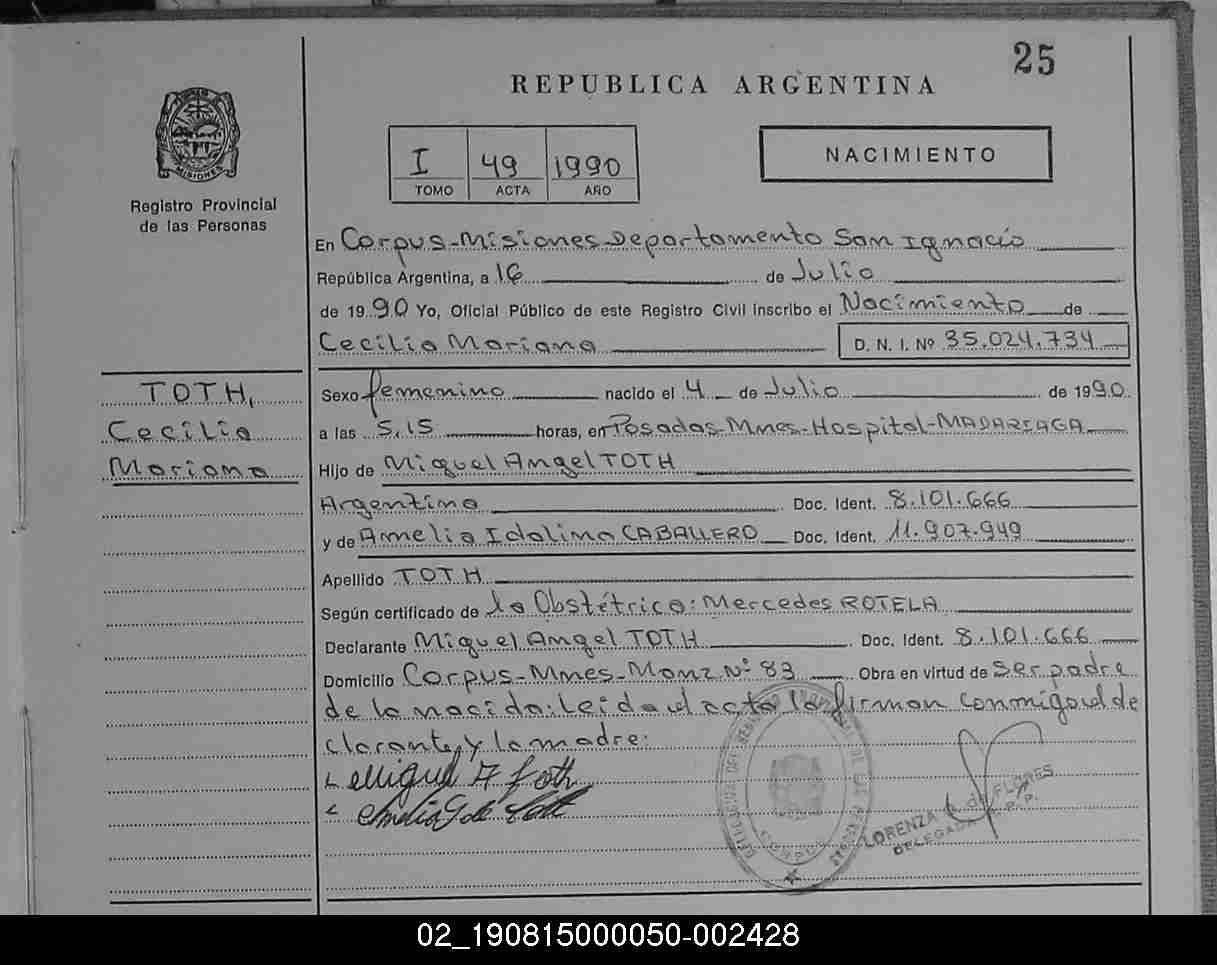 25
REPUBLICA ARGENTINA
MISIONES
Registro Provincial
de las Personas
I 49 1990
TOMO ACTA AÑO
NACIMIENTO
En Corpus-Misiones-Departamento San Ignacio
República Argentina, a 16 de Julio
de 1990 Yo, Oficial Público de este Registro Civil inscribo el Nacimiento de
Cecilia Mariana D. N. I. Nº 35.024.734
TOTH,
Cecilia
Mariana
Sexo femenino nacido el 4 de Julio de 1990
a las 5,15 horas, en Posadas-Mnes-Hospital-MADARIAGA
Hijo de Miguel Angel TOTH
Argentino Doc. Ident. 8.101.666
y de Amelia Idalina CABALLERO Doc. Ident. 11.907.949
Apellido TOTH
Según certificado de la Obstétrica: Mercedes ROTELA
Declarante Miguel Angel TOTH Doc. Ident. 8.101.666
Domicilio Corpus-Mnes-Manz Nº 83 Obra en virtud de ser padre
de la nacida: Leida el acta la firman conmigo el de
clarante, y la madre:
Miguel A Toth
Amelia de Toth
CORPUS
LORENZA de FLORES
DELEGADA R.P.P.
02_190815000050-002428